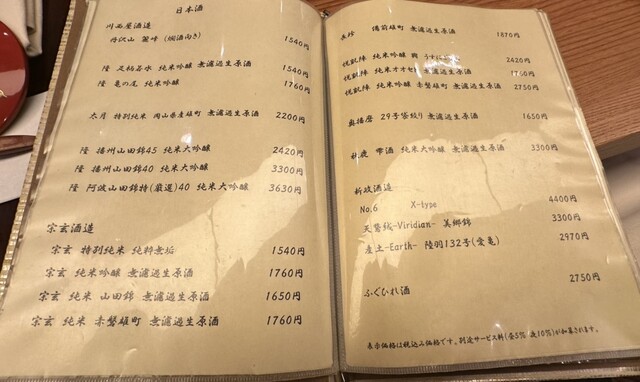 日本酒
川西屋酒造
丹沢山 麗峰 (燗酒向き) 1540円
隆 足柄若水 純米吟醸 無濾過生原酒 1540円
隆 亀の尾 純米吟醸 1760円
太月 特別純米 岡山県産雄町 無濾過生原酒 2200円
隆 播州山田錦45 純米大吟醸 2420円
隆 播州山田錦40 純米大吟醸 3300円
隆 阿波山田錦特(厳選)40 純米大吟醸 3630円
宗玄酒造
宗玄 特別純米 純粋無垢 1540円
宗玄 純米吟醸 無濾過生原酒 1760円
宗玄 純米 山田錦 無濾過生原酒 1650円
宗玄 純米 赤磐雄町 無濾過生原酒 1760円
備前雄町 無濾過生原酒 1870円
悦凱陣 純米吟醸 興 2420円
悦凱陣 純米オオセト 無濾過生原酒 1760円
悦凱陣 純米吟醸 赤磐雄町 無濾過生原酒 2750円
奥播磨 29号袋絞り 無濾過生原酒 1650円
秋鹿 雫酒 純米大吟醸 無濾過生原酒 3300円
新政酒造
No.6 X-type 4400円
天鵞絨-Viridian- 美郷錦 3300円
産土-Earth- 陸羽132号(愛亀) 2970円
ふぐひれ酒 2750円
表示価格は税込み価格です。別途サービス料(昼5% 夜10%)が加算されます。